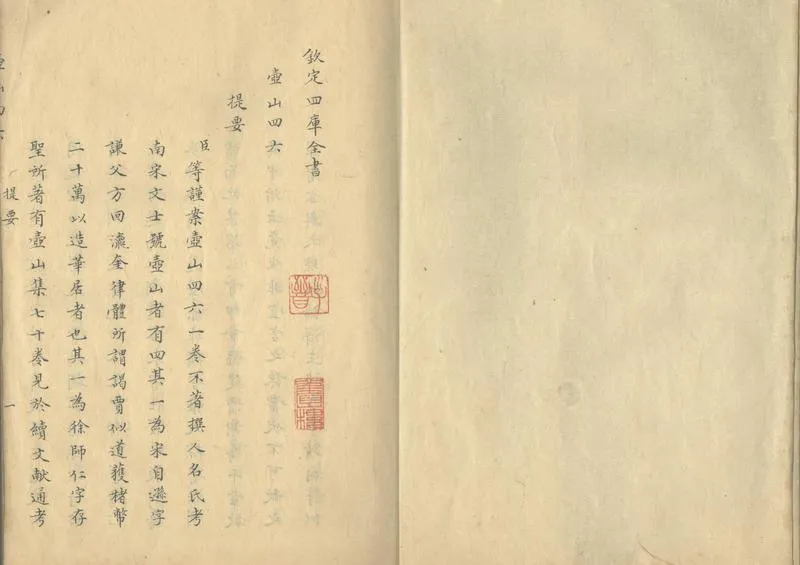 欽定四庫全書
壺山四六
提要
臣等謹案壺山四六一卷不著撰人名氏考
南宋文士號壺山者有四其一為宋自遜字
謙父方回瀛奎律髓所謂謁賈似道獲楮幣
二十萬以造華居者也其一為徐師仁字存
聖所著有壺山集七十卷見於續文獻通考
壺山四六
提要
一